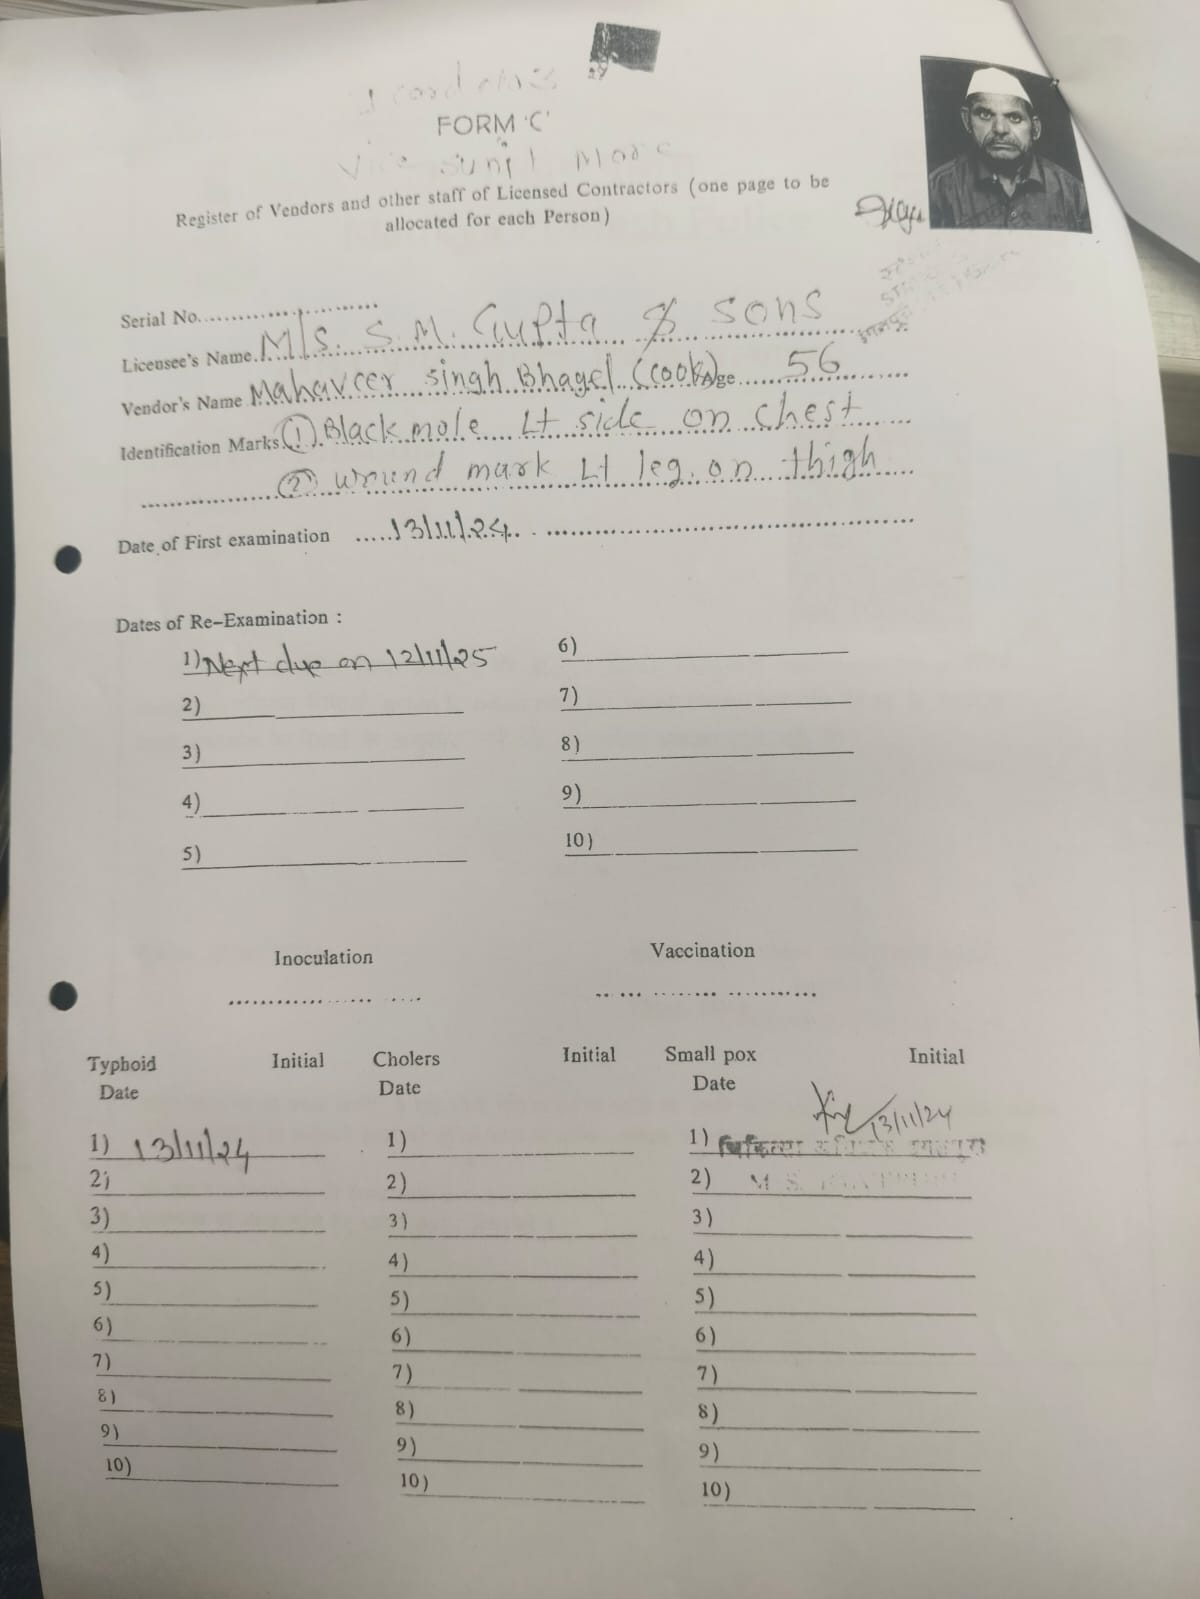 FORM 'C'
Vice Sunil More
Register of Vendors and other staff of Licensed Contractors (one page to be
allocated for each Person)
Serial No.
Licensee's Name. M/s. S.M. Gupta & sons
Vendor's Name Mahaveer singh Bhagel (cook) Age 56
Identification Marks. ① Black mole Lt side on chest
② wound mark Lt leg. on thigh
Date of First examination 13/11/24
Dates of Re-Examination :
1) Next due on 12/11/25 6)
2) 7)
3) 8)
4) 9)
5) 10)
Inoculation Vaccination
Typhoid Initial Cholers Initial Small pox Initial
Date Date Date
13/11/24
1) 13/11/24 1) 1) चिकित्सा
2) 2) 2) M S
3) 3) 3)
4) 4) 4)
5) 5) 5)
6) 6) 6)
7) 7) 7)
8) 8) 8)
9) 9) 9)
10) 10) 10)